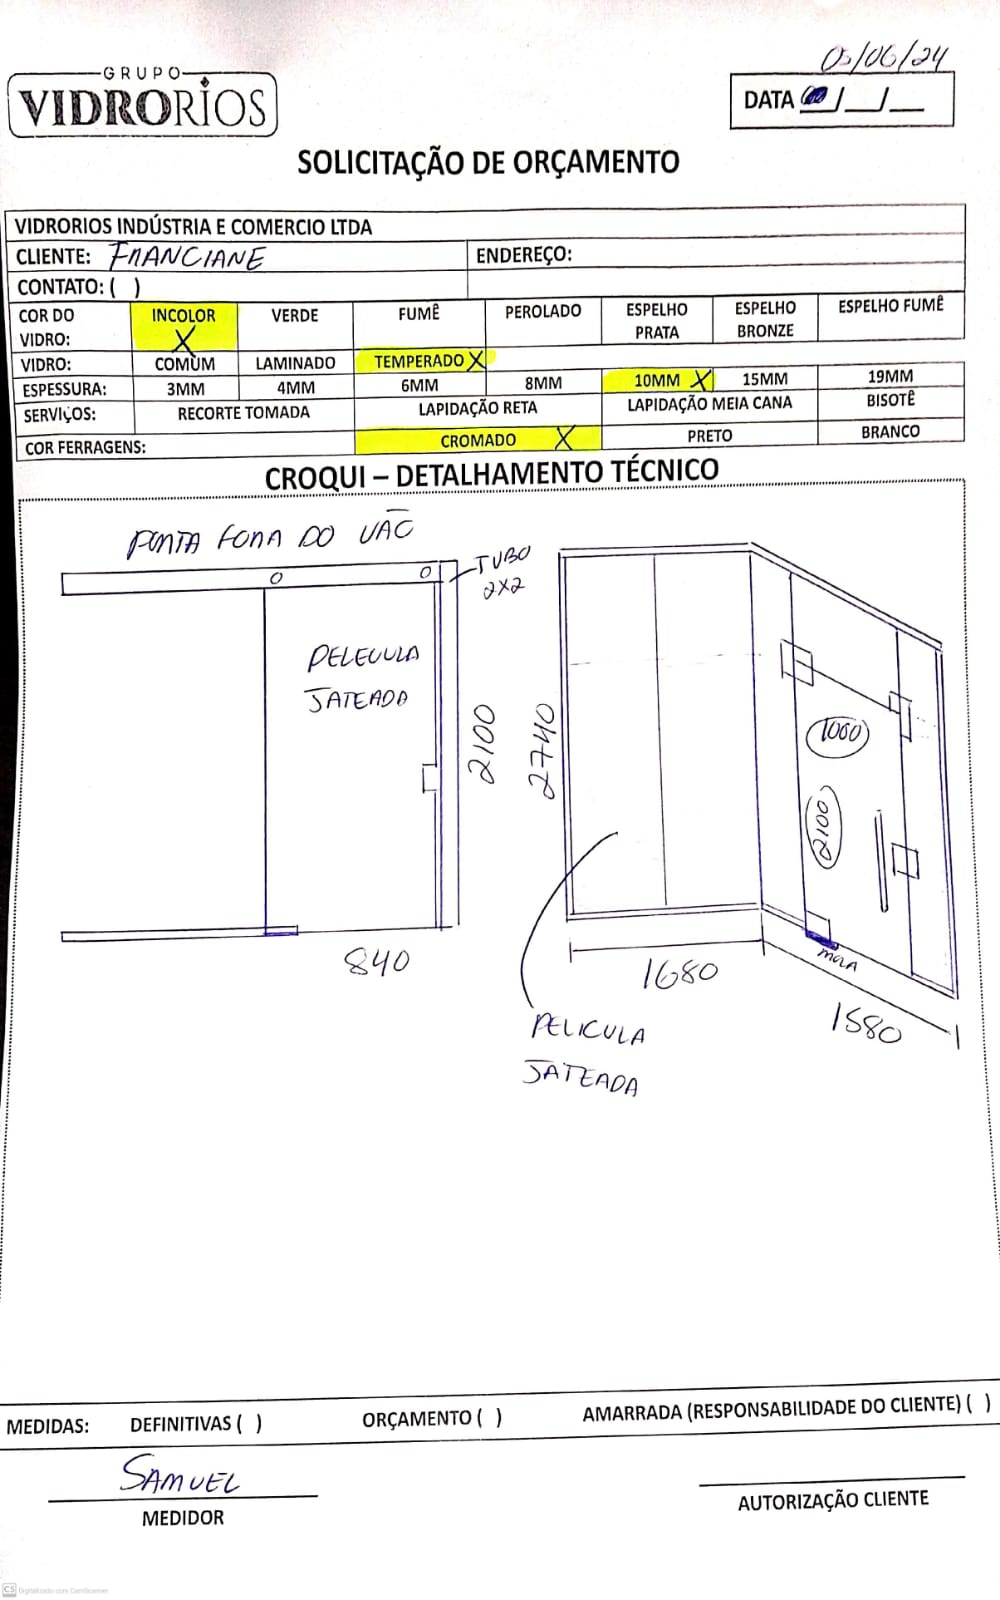 GRUPO
VIDRORIOS
05/06/24
DATA __/__/__
SOLICITAÇÃO DE ORÇAMENTO
VIDRORIOS INDÚSTRIA E COMERCIO LTDA
CLIENTE: FRANCIANE ENDEREÇO:
CONTATO: ( )
COR DO VIDRO: INCOLOR X VERDE FUMÊ PEROLADO ESPELHO PRATA ESPELHO BRONZE ESPELHO FUMÊ
VIDRO: COMUM LAMINADO TEMPERADO X
ESPESSURA: 3MM 4MM 6MM 8MM 10MM X 15MM 19MM
SERVIÇOS: RECORTE TOMADA LAPIDAÇÃO RETA LAPIDAÇÃO MEIA CANA BISOTÊ
COR FERRAGENS: CROMADO X PRETO BRANCO
CROQUI – DETALHAMENTO TÉCNICO
PORTA FORA DO VÃO
TUBO
2X2
PELECULA
JATEADA
2100
840
2740
1000
2100
MOLA
1680
1580
PELICULA
JATEADA
MEDIDAS: DEFINITIVAS ( ) ORÇAMENTO ( ) AMARRADA (RESPONSABILIDADE DO CLIENTE) ( )
SAMUEL
MEDIDOR
AUTORIZAÇÃO CLIENTE
CS Digitalizado com CamScanner